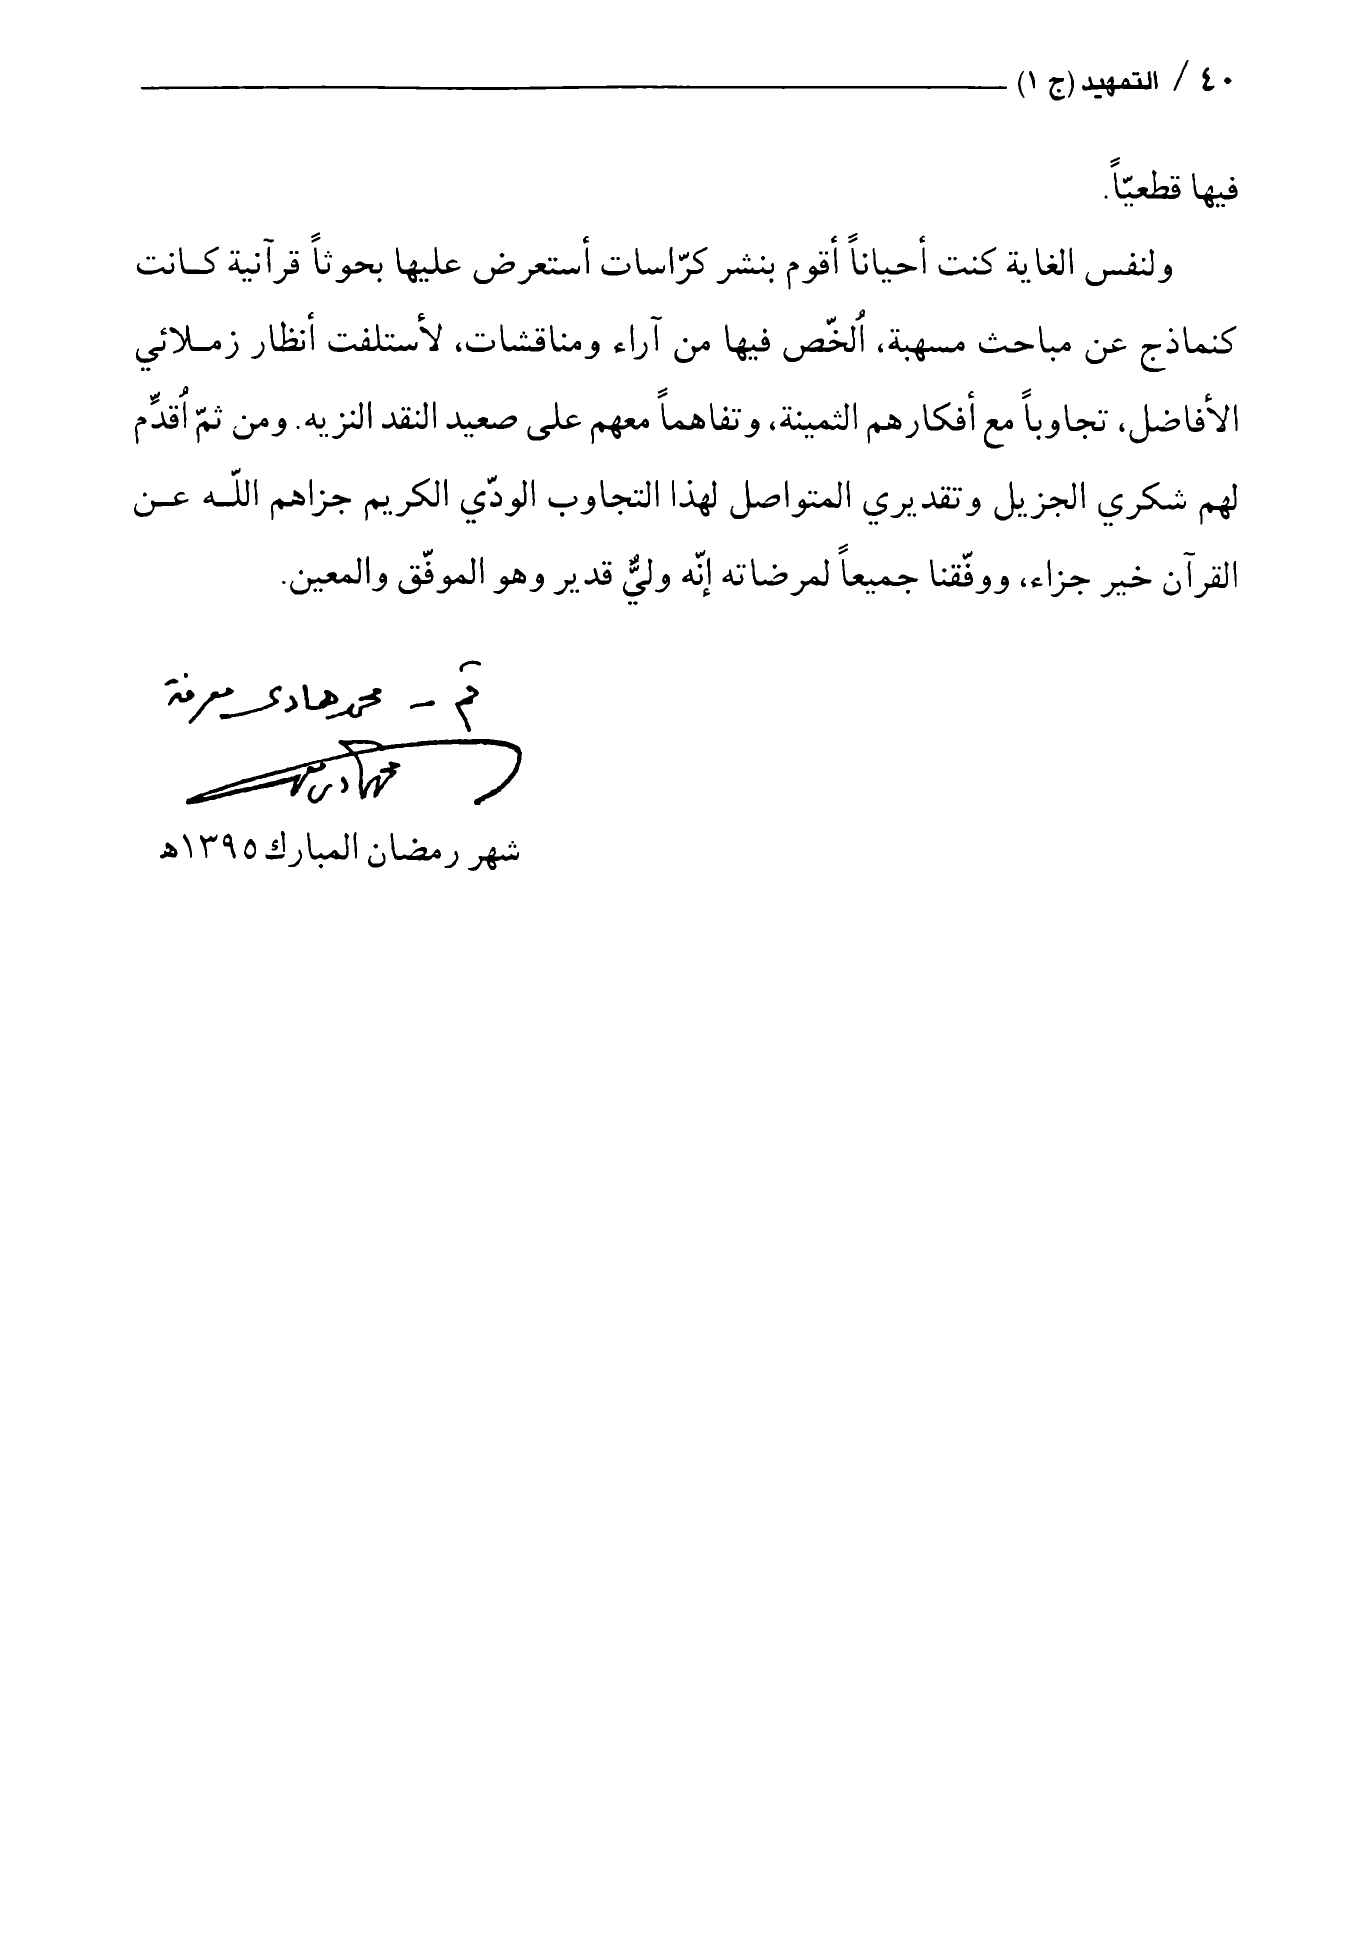 ٤٠ / التمهيد (ج ١)
فيها قطعيّاً.
ولنفس الغاية كنت أحياناً أقوم بنشر كرّاسات أستعرض عليها بحوثاً قرآنية كـانت
كنماذج عن مباحث مسهبة، اُلخّص فيها من آراء ومناقشات، لأستلفت أنظار زمـلائي
الأفاضل، تجاوباً مع أفكارهم الثمينة، وتفاهماً معهم على صعيد النقد النزيه. ومن ثمّ اُقدِّم
لهم شكري الجزيل وتقديري المتواصل لهذا التجاوب الودّي الكريم جزاهم اللّـه عـن
القرآن خير جزاء، ووفّقنا جميعاً لمرضاته إنّه وليٌّ قدير وهو الموفّق والمعين.
قم – محمد هادى معرفة
شهر رمضان المبارك ١٣٩٥ه